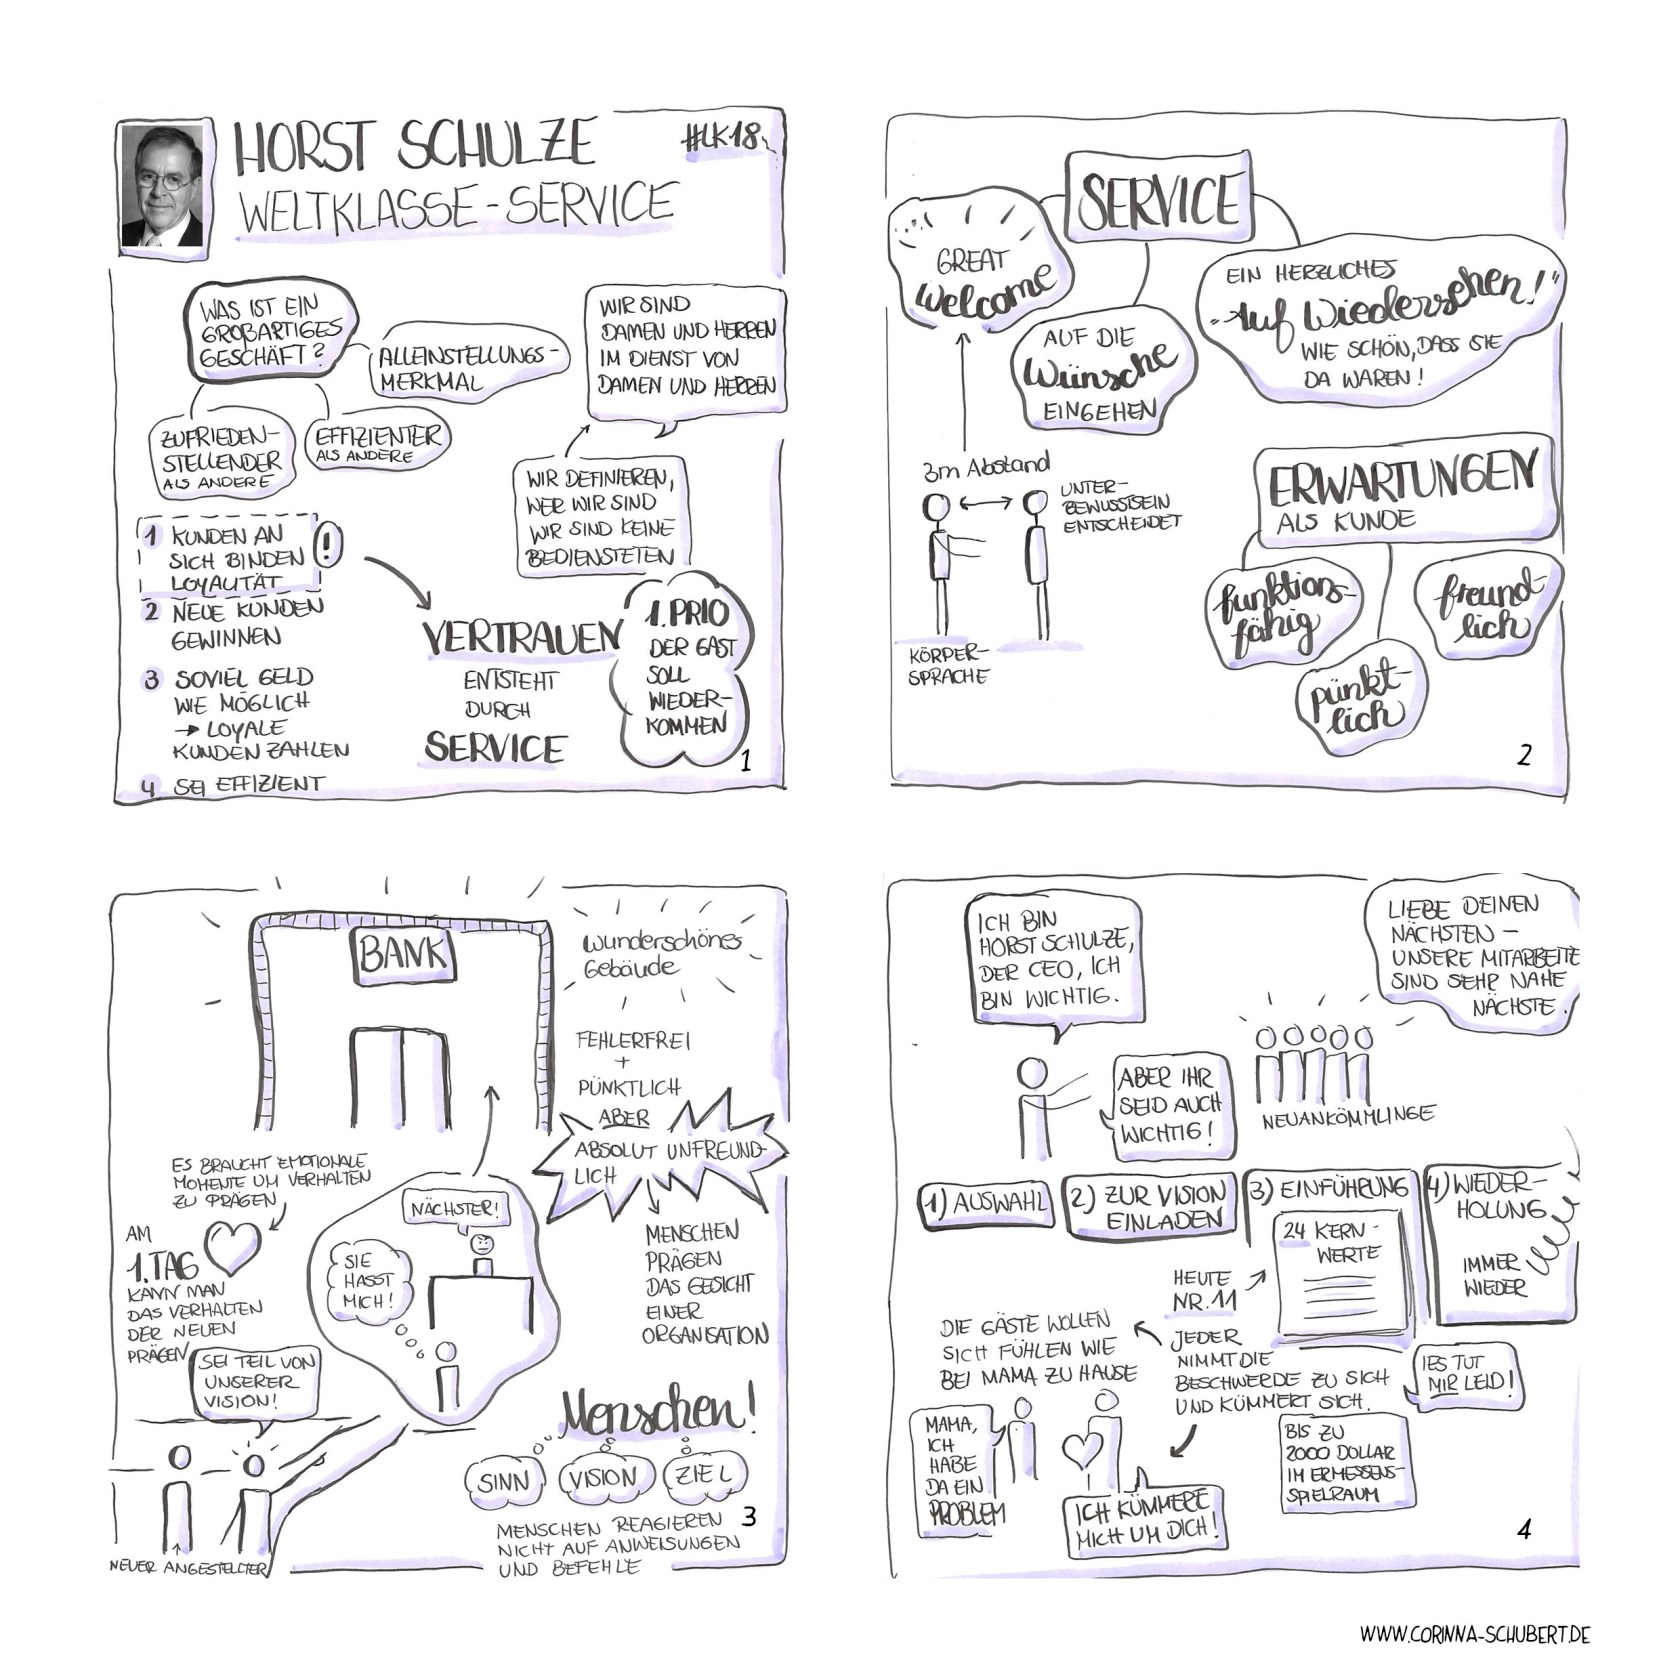 HORST SCHULZE
#LK18
WELTKLASSE-SERVICE
WAS IST EIN
GROßARTIGES
GESCHÄFT?
ALLEINSTELLUNGS-
MERKMAL
ZUFRIEDEN-
STELLENDER
ALS ANDERE
EFFIZIENTER
ALS ANDERE
WIR SIND
DAMEN UND HERREN
IM DIENST VON
DAMEN UND HERREN
WIR DEFINIEREN,
WER WIR SIND
WIR SIND KEINE
BEDIENSTETEN
1 KUNDEN AN
SICH BINDEN
LOYALITÄT
!
2 NEUE KUNDEN
GEWINNEN
3 SOVIEL GELD
WIE MÖGLICH
→ LOYALE
KUNDEN ZAHLEN
4 SEI EFFIZIENT
VERTRAUEN
ENTSTEHT
DURCH
SERVICE
1. PRIO
DER GAST
SOLL
WIEDER-
KOMMEN
1
SERVICE
GREAT
Welcome
AUF DIE
Wünsche
EINGEHEN
EIN HERZLICHES
"Auf Wiedersehen!"
WIE SCHÖN, DASS SIE
DA WAREN!
3m Abstand
UNTER-
BEWUSSTSEIN
ENTSCHEIDET
KÖRPER-
SPRACHE
ERWARTUNGEN
ALS KUNDE
funktions-
fähig
pünkt-
lich
freund-
lich
2
BANK
Wunderschönes
Gebäude
FEHLERFREI
+
PÜNKTLICH
ABER
ABSOLUT UNFREUND-
LICH
MENSCHEN
PRÄGEN
DAS GESICHT
EINER
ORGANISATION
ES BRAUCHT EMOTIONALE
MOMENTE UM VERHALTEN
ZU PRÄGEN
AM
1. TAG
KANN MAN
DAS VERHALTEN
DER NEUEN
PRÄGEN
NÄCHSTER!
SIE
HASST
MICH!
SEI TEIL VON
UNSERER
VISION!
NEUER ANGESTELLTER
Menschen!
SINN
VISION
ZIEL
MENSCHEN REAGIEREN
NICHT AUF ANWEISUNGEN
UND BEFEHLE
3
ICH BIN
HORST SCHULZE,
DER CEO, ICH
BIN WICHTIG.
ABER IHR
SEID AUCH
WICHTIG!
LIEBE DEINEN
NÄCHSTEN -
UNSERE MITARBEITE
SIND SEHR NAHE
NÄCHSTE.
NEUANKÖMMLINGE
1) AUSWAHL
2) ZUR VISION
EINLADEN
3) EINFÜHRUNG
24 KERN-
WERTE
4) WIEDER-
HOLUNG
IMMER
WIEDER
HEUTE
NR. 11
JEDER
NIMMT DIE
BESCHWERDE ZU SICH
UND KÜMMERT SICH.
DIE GÄSTE WOLLEN
SICH FÜHLEN WIE
BEI MAMA ZU HAUSE
MAMA,
ICH
HABE
DA EIN
PROBLEM
ICH KÜMMERE
MICH UM DICH!
ES TUT
MIR LEID!
BIS ZU
2000 DOLLAR
IM ERMESSENS-
SPIELRAUM
4
WWW.CORINNA-SCHUBERT.DE